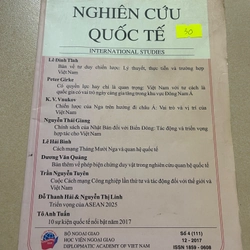 NGHIÊN CỨU
QUỐC TẾ
30
INTERNATIONAL STUDIES
Lê Đình Tĩnh
Bàn về tư duy chiến lược: Lý thuyết, thực tiễn và trường hợp
Việt Nam
Peter Girke
Có quyền lực hay chỉ là quan trọng: Việt Nam với tư cách là
quốc gia có vai trò ngày càng gia tăng trong khu vực Đông Nam Á
K. V. Vnukov
Chiến lược của Nga trên hướng đi châu Á: Vai trò và vị trí của
Việt Nam
Nguyễn Thái Giang
Chính sách của Nhật Bản đối với Biển Đông: Tác động và triển vọng
hợp tác cho Việt Nam
Lê Hải Bình
Cách mạng Tháng Mười Nga và quan hệ quốc tế
Dương Văn Quảng
Bàn thêm về phép biện chứng duy vật trong nghiên cứu quan hệ quốc tế
Trần Nguyên Tuyên
Cuộc Cách mạng Công nghiệp lần thứ tư và tác động đối với thế giới và
Việt Nam
Đỗ Thanh Hải & Nguyễn Thị Linh
Triển vọng của ASEAN 2025
Tô Anh Tuấn
10 sự kiện quốc tế nổi bật năm 2017
BỘ NGOẠI GIAO
HỌC VIỆN NGOẠI GIAO
DIPLOMATIC ACADEMY OF VIET NAM
Số 4 (111)
12 - 2017
ISSN 1859 - 0608